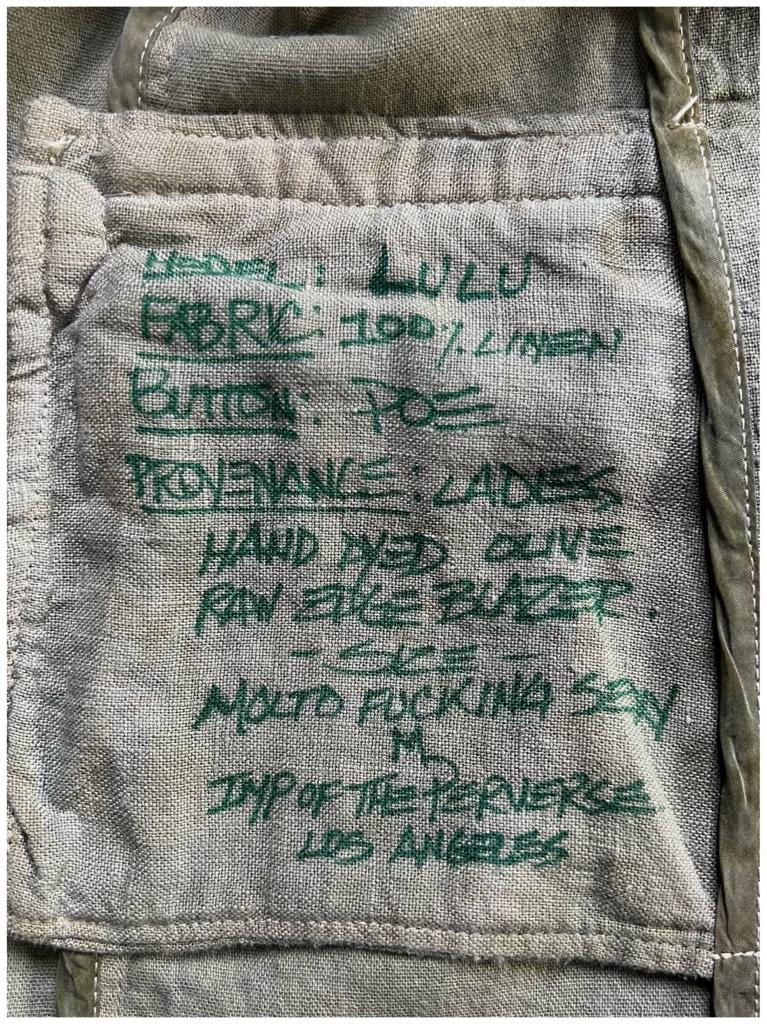 MODEL: LULU
FABRIC: 100% LINEN
BUTTON: POE
PROVENANCE: LADIES
HAND DYED OLIVE
RAW EDGE BLAZER.
- SIZE -
MOLTO FUCKING SEXY
M
IMP OF THE PERVERSE
LOS ANGELES